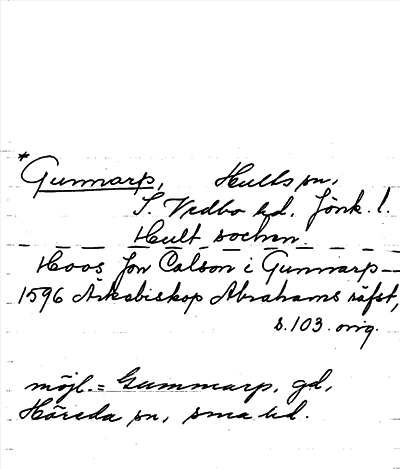 * Gunnarp, Hults sn,
S. Vedbo hd, Jönk. l.
Hult sochen.
Hoos Jon Calson i Gunnarp —
1596 Ärkebiskop Abrahams räfst,
s. 103. orig.
möjl. = Gummarp, gd,
Höreda sn, sma hd.